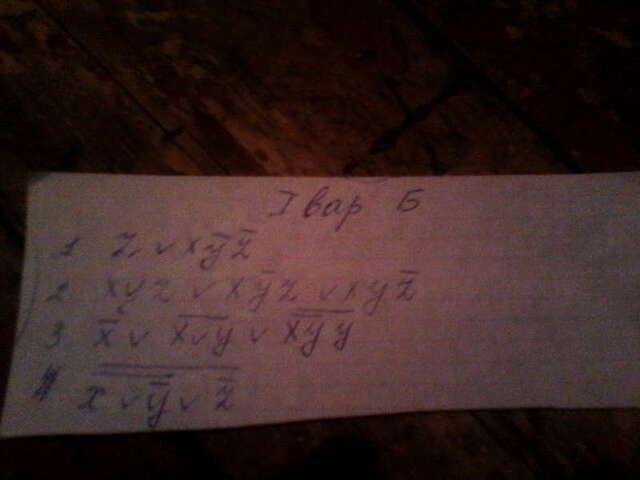 I вар Б
1 z ∨ xy̅z̅
2 xyz ∨ xy̅z ∨ xyz̅
3 x̅ ∨ \overline{x ∨ y} ∨ \overline{x\overline{y}y}
4 \overline{\overline{x ∨ \overline{\overline{y}} ∨ \overline{z}}}